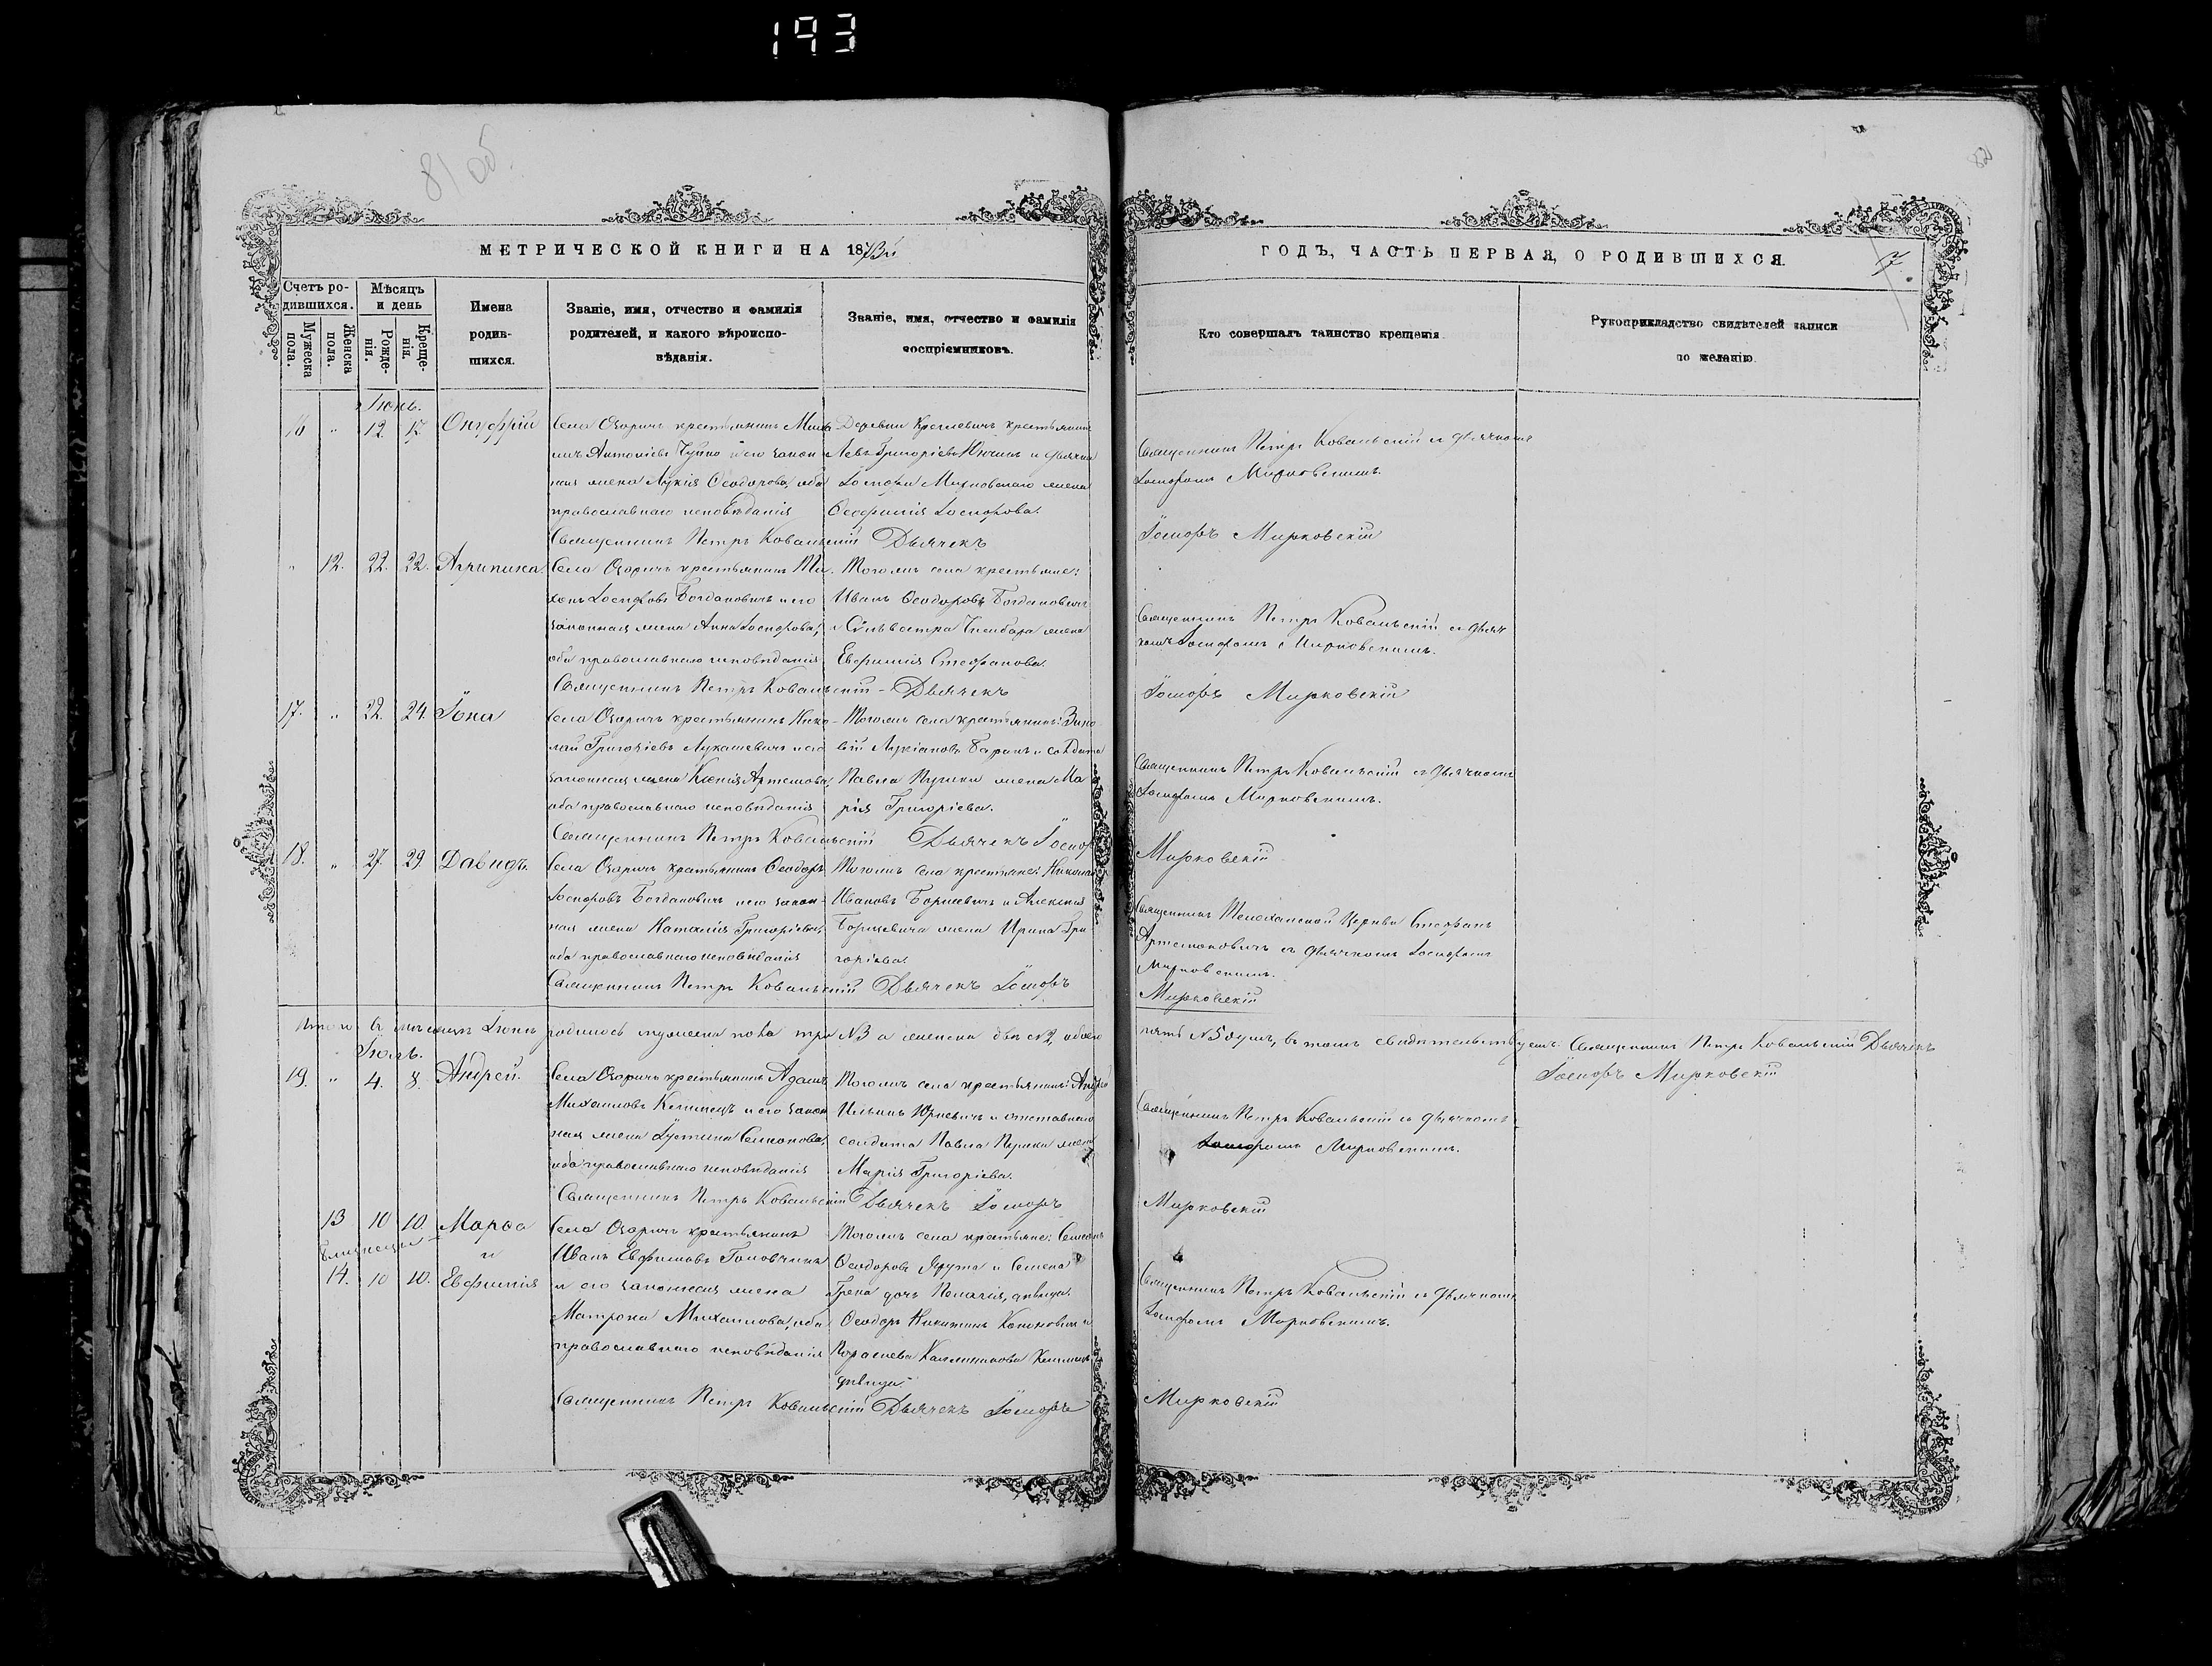 193
81 об.
82
МЕТРИЧЕСКОЙ КНИГИ НА 1873й
ГОДЪ, ЧАСТЬ ПЕРВАЯ, О РОДИВШИХСЯ.
7
Счетъ ро-
дившихся.
Мужеска
пола.
Женска
пола.
Мѣсяцъ
и день
Рожде-
нія.
Креще-
нія.
Имена
родив-
шихся.
Званіе, имя, отчество и фамилія
родителей, и какого вѣроиспо-
вѣданія.
Званіе, имя, отчество и фамилія
воспріемниковъ.
Кто совершалъ таинство крещенія
Рукоприкладство свидѣтелей записи
по желанію.
Іюнь.
16 " 12. 17. Онуфрій
Села Озаричъ крестьянинъ Миха
илъ Антоніевъ и его закон
ная жена Лукія Ѳеодорова, оба
православнаго исповѣданія
Деревни крестьянинъ
Левъ Григоріевъ и дьячка
Іосифа Мирковскаго жена
Ѳеофилія Іосифова.
Священникъ Петръ Ковальскій съ дьячкомъ
Іосифомъ Мирковскимъ.
Священникъ Петръ Ковальскій Дьячекъ
Іосифъ Мирковскій
" 12. 22. 22. Агрипина.
Села Озаричъ крестьянинъ Ти-
хонъ Іосифовъ Богдановичъ и его
законная жена Анна Іосифова,
оба православнаго исповѣданія
Тогожъ села крестьяне:
Иванъ Ѳеодоровъ Богдановичъ
и Сильвестра жена
Евфимія Стефанова.
Священникъ Петръ Ковальскій съ дьяч
комъ Іосифомъ Мирковскимъ.
Священникъ Петръ Ковальскій - Дьячекъ
Іосифъ Мирковскій
17. " 22. 24. Іона
Села Озаричъ крестьянинъ Нико-
лай Григоріевъ Лукашевичъ и его
законная жена Ксенія Артемова,
оба православнаго исповѣданія
Тогожъ села крестьянинъ: Зино
вій Лукіановъ Баранъ и солдата
Павла жена Ма
рія Григоріева.
Священникъ Петръ Ковальскій съ дьячкомъ
Іосифомъ Мирковскимъ.
Священникъ Петръ Ковальскій Дьячекъ Іосиф
Мирковскій
18. " 27. 29 Давидъ.
Села Озаричъ крестьянинъ Ѳеодоръ
Іосифовъ Богдановичъ и его закон-
ная жена Наталія Григоріева,
оба православнаго исповѣданія
Тогожъ села крестьяне: Николай
Ивановъ Борисевичъ и Алексія
Борисевича жена Ирина Гри
горіева.
Священникъ Телеханской Церкви Стефанъ
Артемоновичъ съ дьячкомъ Іосифомъ
Мирковскимъ.
Священникъ Петръ Ковальскій Дьячекъ Іосифъ
Мирковскій
Итого въ мѣсяцѣ Іюнѣ родилось мужеска пола три №3 а женска два №2, обоего
пять №5 душъ, въ томъ свидѣтельствуемъ: Священникъ Петръ Ковальскій Дьячекъ
Іосифъ Мирковскій
Іюль.
19. " 4. 8. Андрей.
Села Озаричъ крестьянинъ Адамъ
Михаиловъ и его закон
ная жена Іустина Симонова,
оба православнаго исповѣданія
Тогожъ села крестьянинъ: Андрей
Ильинъ Юркевичъ и отставнаго
солдата Павла жена
Марія Григоріева.
Священникъ Петръ Ковальскій съ дьячкомъ
Іосифомъ Мирковскимъ.
Священникъ Петръ Ковальскій Дьячекъ Іосифъ
Мирковскій
13 10 10. Марѳа
близнецы и
14. 10 10. Евфимія
Села Озаричъ крестьянинъ
Иванъ Евфимовъ Головчикъ
и его законная жена
Матрона Михаилова, оба
православнаго исповѣданія
Тогожъ села крестьяне: Симеонъ
Ѳеодоровъ и Семена
дочь Пелагія, дѣвица.
Ѳеодоръ Никитинъ Кононовичъ и
Каллиникова
дѣвица.
Священникъ Петръ Ковальскій съ дьячкомъ
Іосифомъ Мирковскимъ.
Священникъ Петръ Ковальскій Дьячекъ Іосифъ
Мирковскій